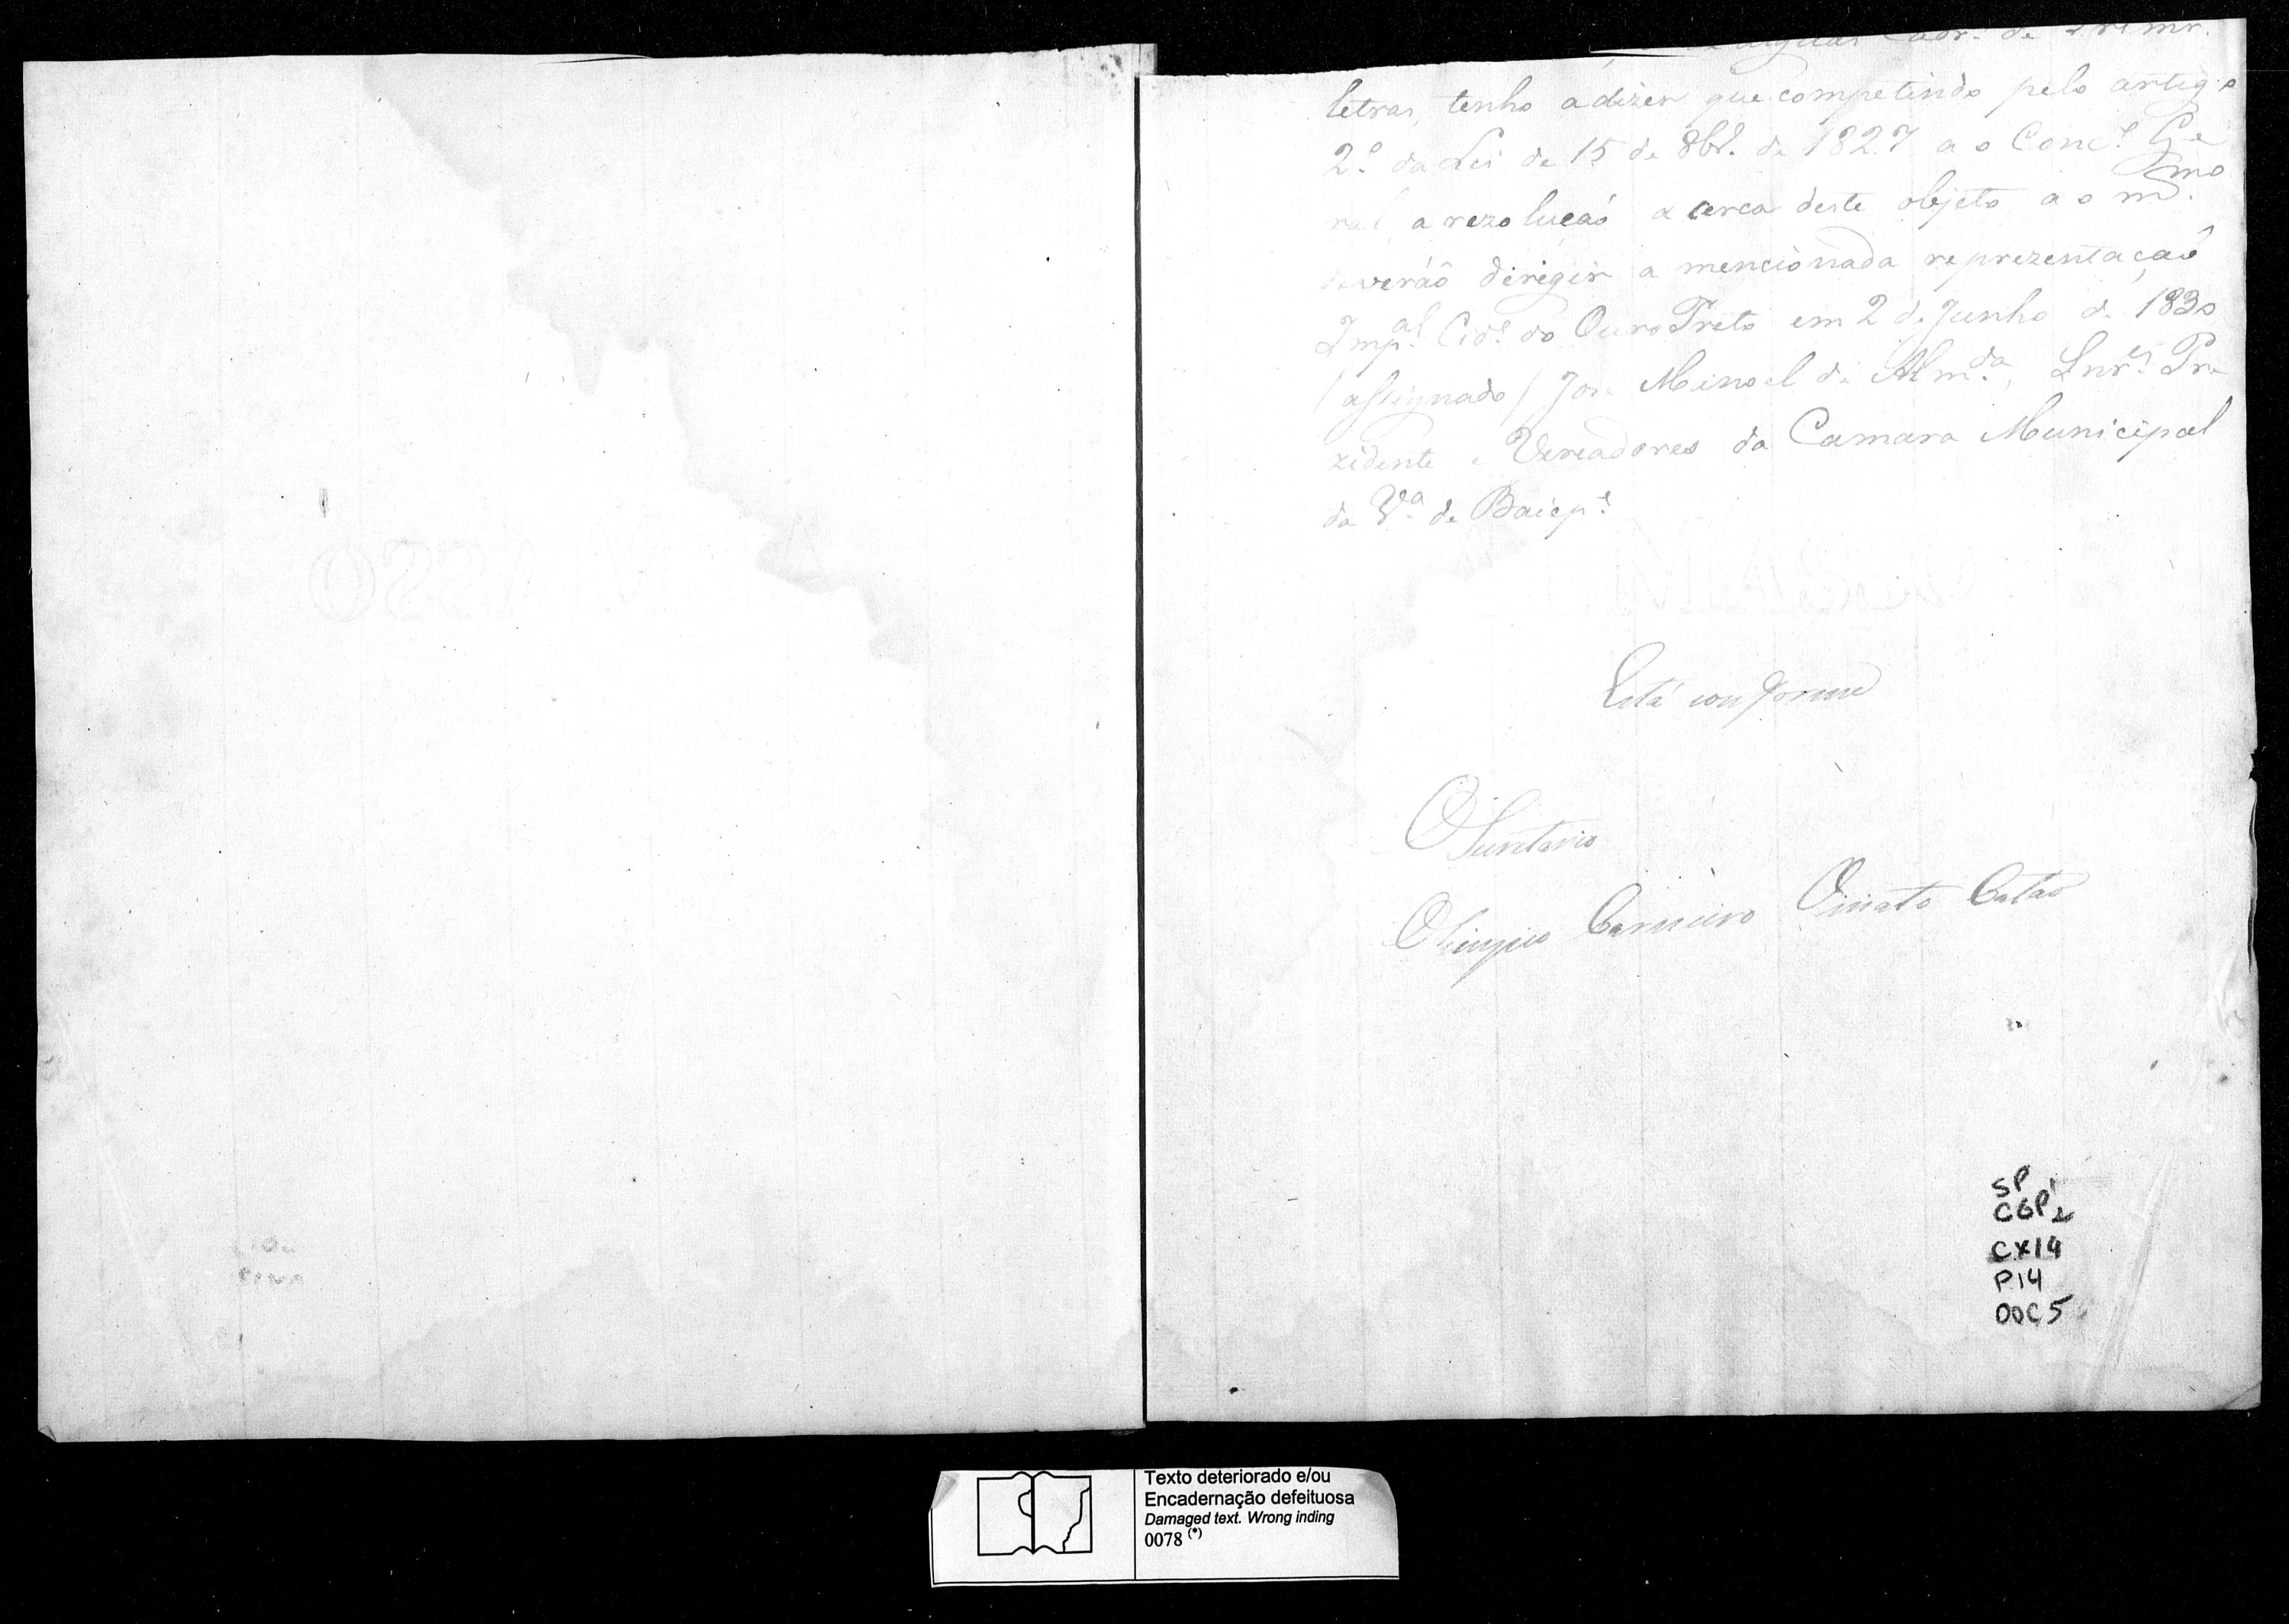 algũas Cadr.ˢ de Primr.ˢ
letras, tenho adizer que competindo pelo artigo
2º da Lei de 15 de 8br.º de 1827 ao Conc.º Ge
ral, a rezoluçaõ acerca deste objeto ao m.mo
deveráõ dirigir a mencionada reprezentaçaõ
Imp.al Cid.e do Ouro Preto em 2 de Junho de 1830
/assignado/ Joze Manoel de Alm.da, Snr.es Pre
zidente e Vereadores da Camara Municipal
da V.a de Baiep.e
Está conforme
O Secretario
Olimpio Carneiro Viriato Catão
SP
CGP 2
CX14
P.14
DOC5
Texto deteriorado e/ou
Encadernação defeituosa
Damaged text. Wrong inding
0078 (*)